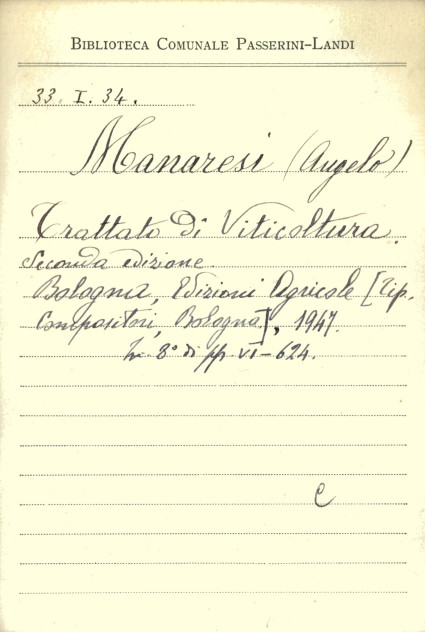 BIBLIOTECA COMUNALE PASSERINI-LANDI
33. I. 34.
Manaresi (Angelo)
Trattato di Viticoltura.
Seconda edizione.
Bologna, Edizioni Agricole [Tip.
Compositori, Bologna], 1947.
In 8° di pp. VI-624.
C